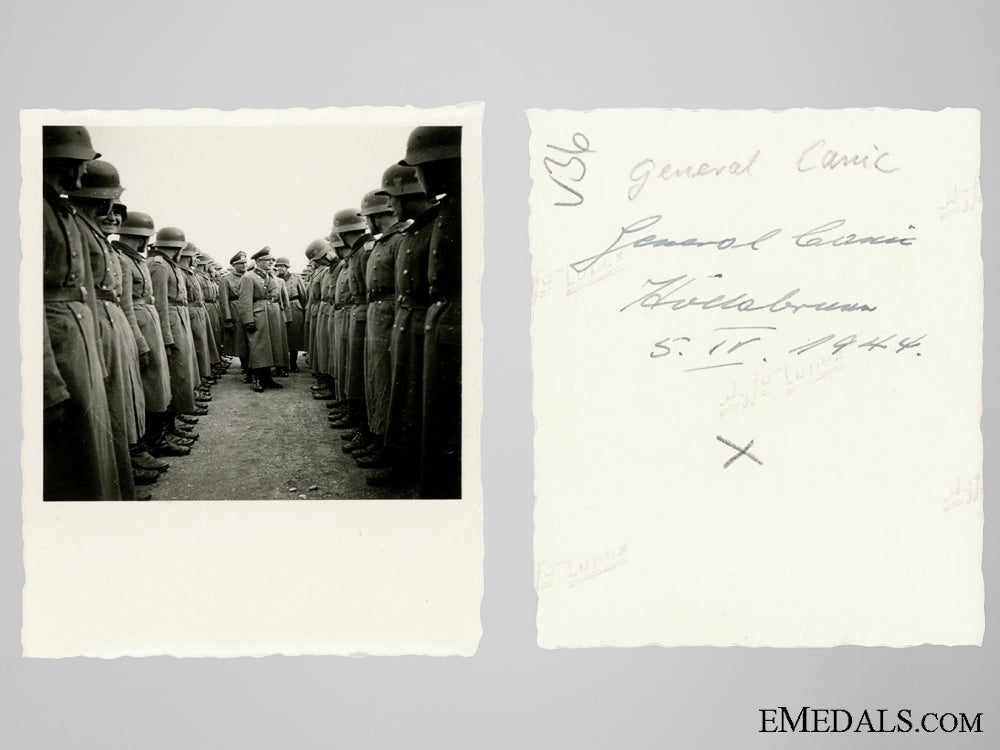 V36
General Canic
General Canic
Hollabrunn
5. IV. 1944.
Agfa-Lupex
X
Agfa-Lupex
EMEDALS.COM